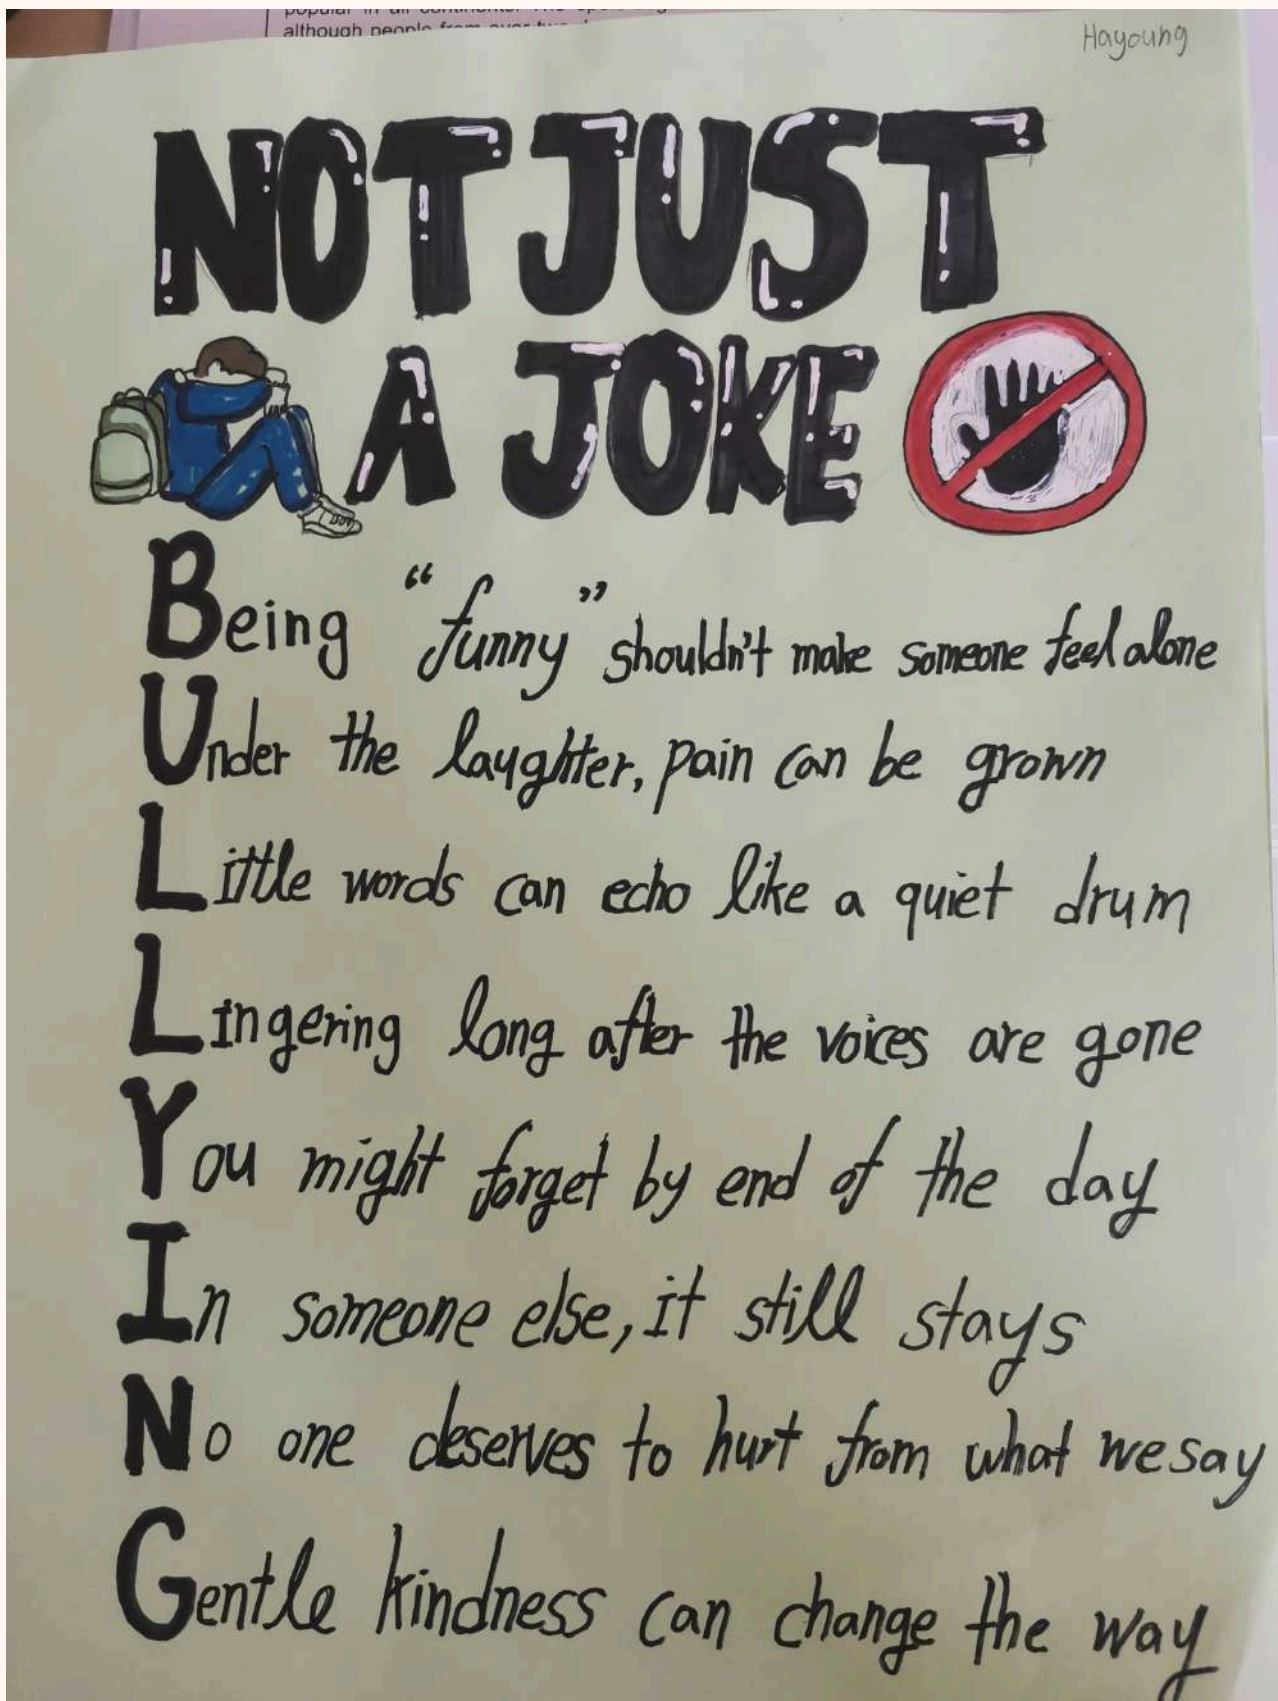 popular in all continents. The
although people from over two
Hayoung
NOT JUST
A JOKE
Being “funny” shouldn't make someone feel alone
Under the laughter, pain can be grown
Little words can echo like a quiet drum
Lingering long after the voices are gone
You might forget by end of the day
In someone else, it still stays
No one deserves to hurt from what we say
Gentle kindness can change the way